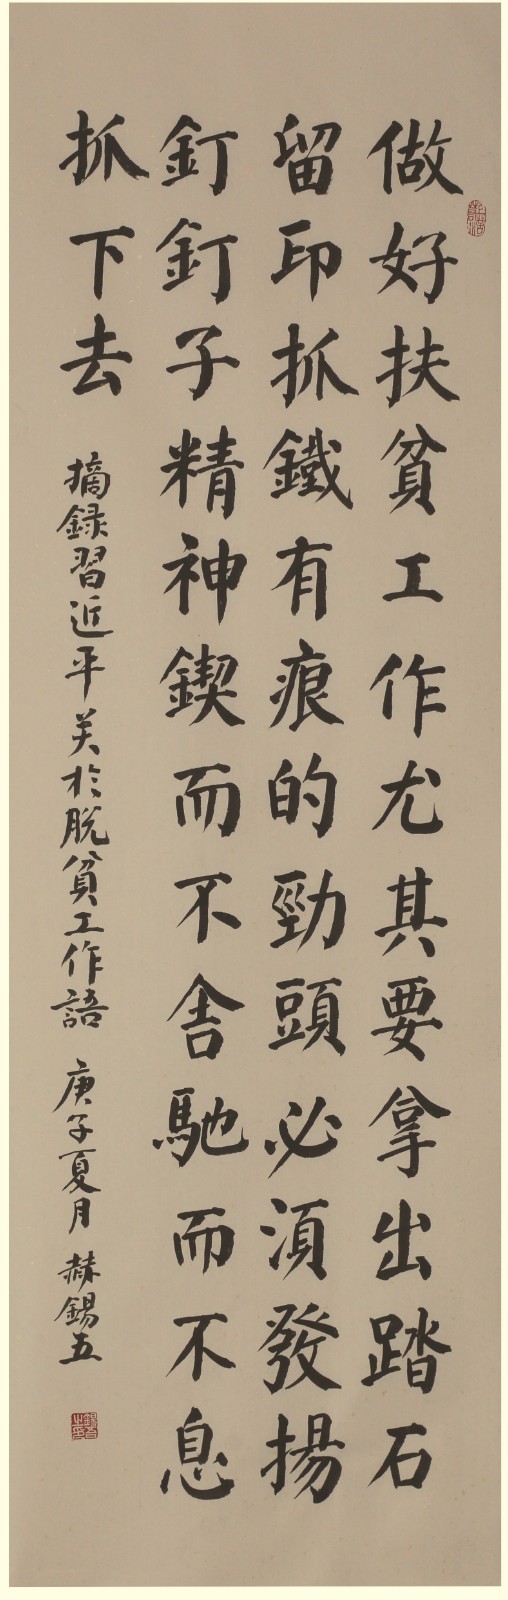 做好扶貧工作尤其要拿出踏石
留印抓鐵有痕的勁頭必湏發揚
釘釘子精神鍥而不舍馳而不息
抓下去
摘録習近平关於脱貧工作語 庚子夏月 赫錫五